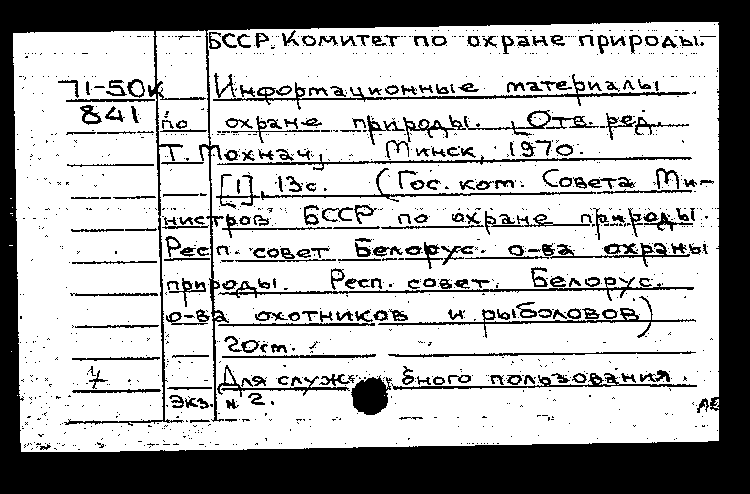 БССР. Комитет по охране природы.
71-50к Информационные материалы
841 по охране природы. [Отв. ред.
Т. Мохнач], Минск, 1970.
[1], 13с. (Гос. ком. Совета Ми-
нистров БССР по охране природы.
Респ. совет Белорус. о-ва охраны
природы. Респ. совет. Белорус.
о-ва охотников и рыболовов)
20см.
7 Для служебного пользования.
Экз. № 2.